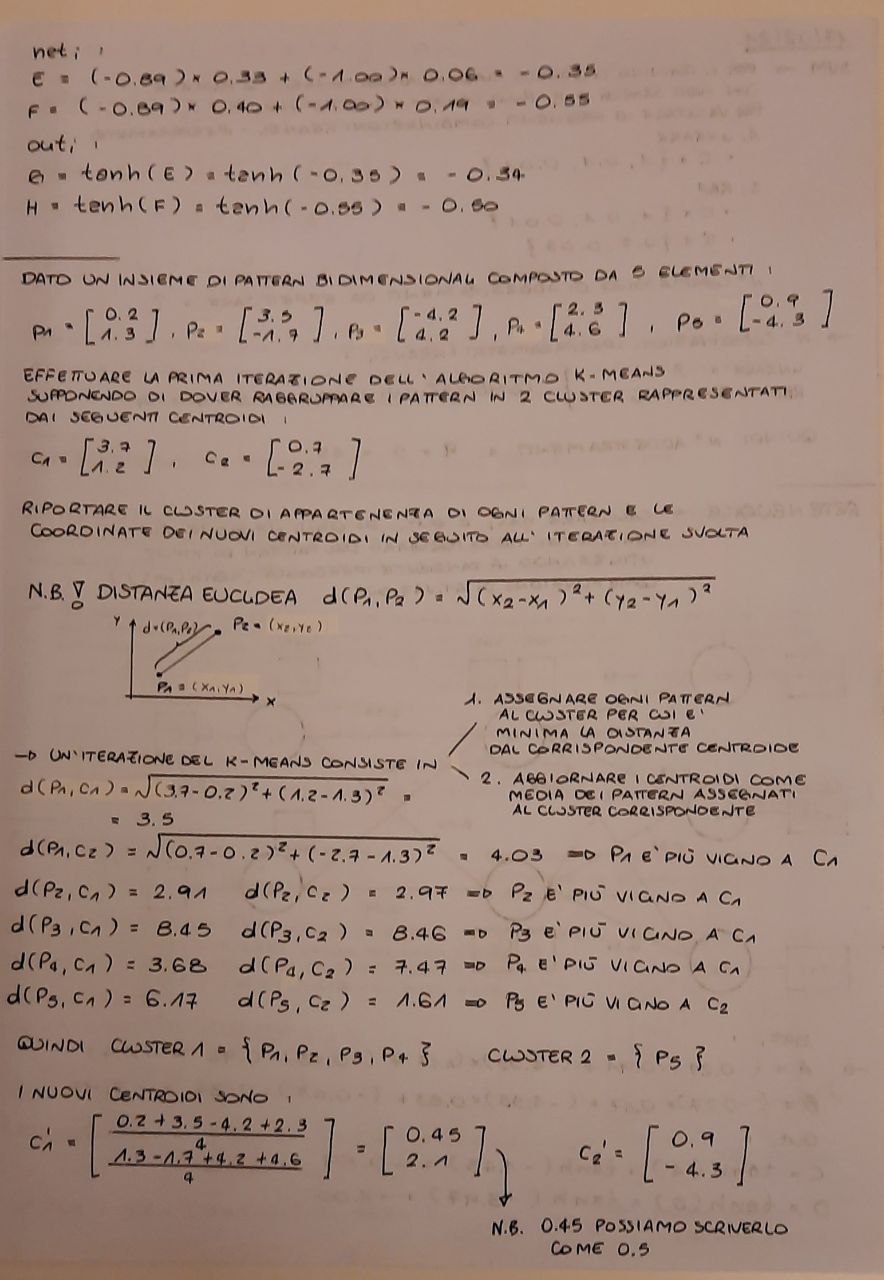 net; :
E = (-0.89) × 0.33 + (-1.00) × 0.06 = -0.35
F = (-0.89) × 0.40 + (-1.00) × 0.19 = -0.55
out; :
G = tanh(E) = tanh(-0.35) = -0.34
H = tanh(F) = tanh(-0.55) = -0.50
DATO UN INSIEME DI PATTERN BIDIMENSIONALI COMPOSTO DA 5 ELEMENTI :
P1 = [0.2 1.3], P2 = [3.5 -1.7], P3 = [-4.2 4.2], P4 = [2.3 4.6], P5 = [0.9 -4.3]
EFFETTUARE LA PRIMA ITERAZIONE DELL'ALGORITMO K-MEANS
SUPPONENDO DI DOVER RAGGRUPPARE I PATTERN IN 2 CLUSTER RAPPRESENTATI
DAI SEGUENTI CENTROIDI :
C1 = [3.7 1.2], C2 = [0.7 -2.7]
RIPORTARE IL CLUSTER DI APPARTENENZA DI OGNI PATTERN E LE
COORDINATE DEI NUOVI CENTROIDI IN SEGUITO ALL'ITERAZIONE SVOLTA
N.B. ! DISTANZA EUCLIDEA d(P1,P2) = √(x2-x1)²+(y2-y1)²
Y d=(P1,P2) P2=(x2,y2)
P1=(x1,y1) x
1. ASSEGNARE OGNI PATTERN
AL CLUSTER PER CUI E'
MINIMA LA DISTANZA
DAL CORRISPONDENTE CENTROIDE
→ UN'ITERAZIONE DEL K-MEANS CONSISTE IN
2. AGGIORNARE I CENTROIDI COME
MEDIA DEI PATTERN ASSEGNATI
AL CLUSTER CORRISPONDENTE
d(P1,C1) = √(3.7-0.2)²+(1.2-1.3)² =
= 3.5
d(P1,C2) = √(0.7-0.2)²+(-2.7-1.3)² = 4.03 ⇒ P1 E' PIÙ VICINO A C1
d(P2,C1) = 2.91 d(P2,C2) = 2.97 ⇒ P2 E' PIÙ VICINO A C1
d(P3,C1) = 8.45 d(P3,C2) = 8.46 ⇒ P3 E' PIÙ VICINO A C1
d(P4,C1) = 3.68 d(P4,C2) = 7.47 ⇒ P4 E' PIÙ VICINO A C1
d(P5,C1) = 6.17 d(P5,C2) = 1.61 ⇒ P5 E' PIÙ VICINO A C2
QUINDI CLUSTER 1 = {P1, P2, P3, P4} CLUSTER 2 = {P5}
I NUOVI CENTROIDI SONO :
C1' = [(0.2+3.5-4.2+2.3)/4 (1.3-1.7+4.2+4.6)/4] = [0.45 2.1] C2' = [0.9 -4.3]
N.B. 0.45 POSSIAMO SCRIVERLO
COME 0.5